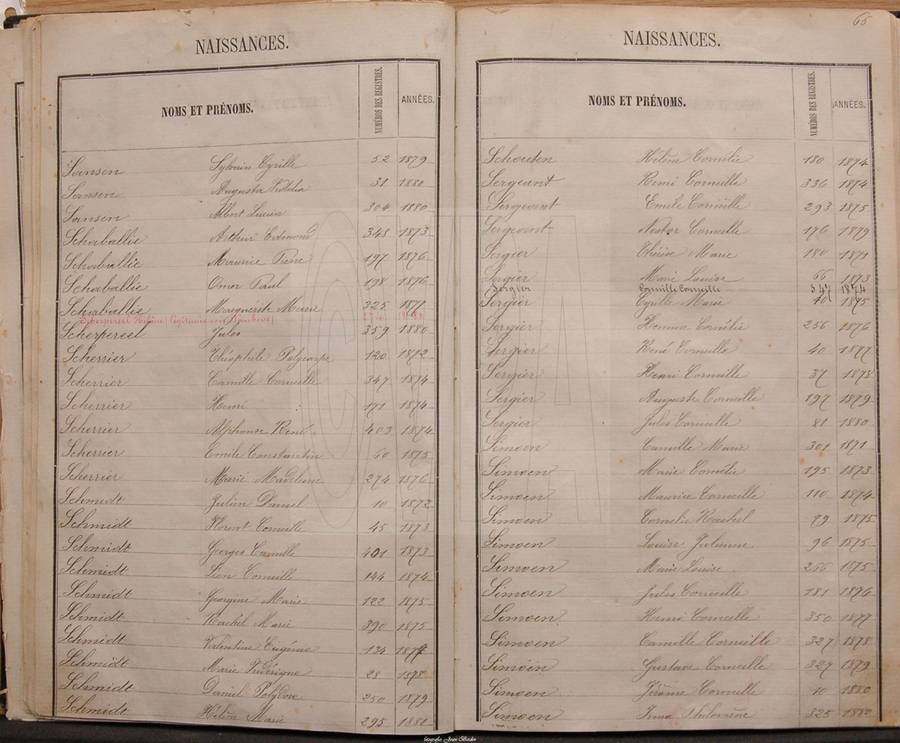 NAISSANCES.
NOMS ET PRÉNOMS. NUMÉROS DES REGISTRES. ANNÉES.
Sansen Sylvain Cyrille 52 1879
Sansen Augusta 31 1880
Sansen Albert Lucien 304 1880
Schaballie Arthur Edmond 345 1873
Schaballie Maurice Pierre 197 1876
Schaballie Omer Paul 198 1876
Schaballie Marguerite Marie 325 1877
Scherpereel
Scherpereel Jules 359 1880
Scherrier Théophile Polycarpe 120 1872
Scherrier Camille Corneille 347 1874
Scherrier Henri 171 1874
Scherrier Alphonse René 403 1874
Scherrier Emile Constantin 60 1875
Scherrier Marie Madeleine 274 1876
Schmidt Julien Daniel 10 1872
Schmidt Florent Corneille 45 1873
Schmidt Georges Camille 401 1873
Schmidt Léon Corneille 144 1874
Schmidt Georgine Marie 122 1875
Schmidt Rachel Marie 390 1875
Schmidt Valentine Eugénie 124 1877
Schmidt Marie 28 1878
Schmidt Daniel 250 1879
Schmidt Hélène Marie 295 1881
65
NAISSANCES.
NOMS ET PRÉNOMS. NUMÉROS DES REGISTRES. ANNÉES.
Schouten Hélène Cornélie 180 1874
Sergeant Remi Corneille 336 1874
Sergeant Emile Corneille 293 1875
Sergeant Nestor Corneille 176 1879
Sergier Marie 180 1871
Sergier Marie Louise 66 1873
Sergier Camille Corneille 347 1874
Sergier Cyrille Marie 401 1875
Sergier Cornélie 256 1876
Sergier René Corneille 40 1877
Sergier Henri Corneille 37 1878
Sergier Auguste Corneille 197 1879
Sergier Jules Corneille 81 1880
Simoen Camille Marie 301 1871
Simoen Marie Cornélie 195 1873
Simoen Maurice Corneille 110 1874
Simoen Cornélie Rachel 79 1875
Simoen Louise Julienne 96 1875
Simoen Marie Louise 266 1875
Simoen Jules Corneille 181 1876
Simoen Henri Corneille 350 1877
Simoen Camille Corneille 327 1878
Simoen Gustave Corneille 327 1879
Simoen Jérôme Corneille 10 1880
Simoen Irma Philomène 325